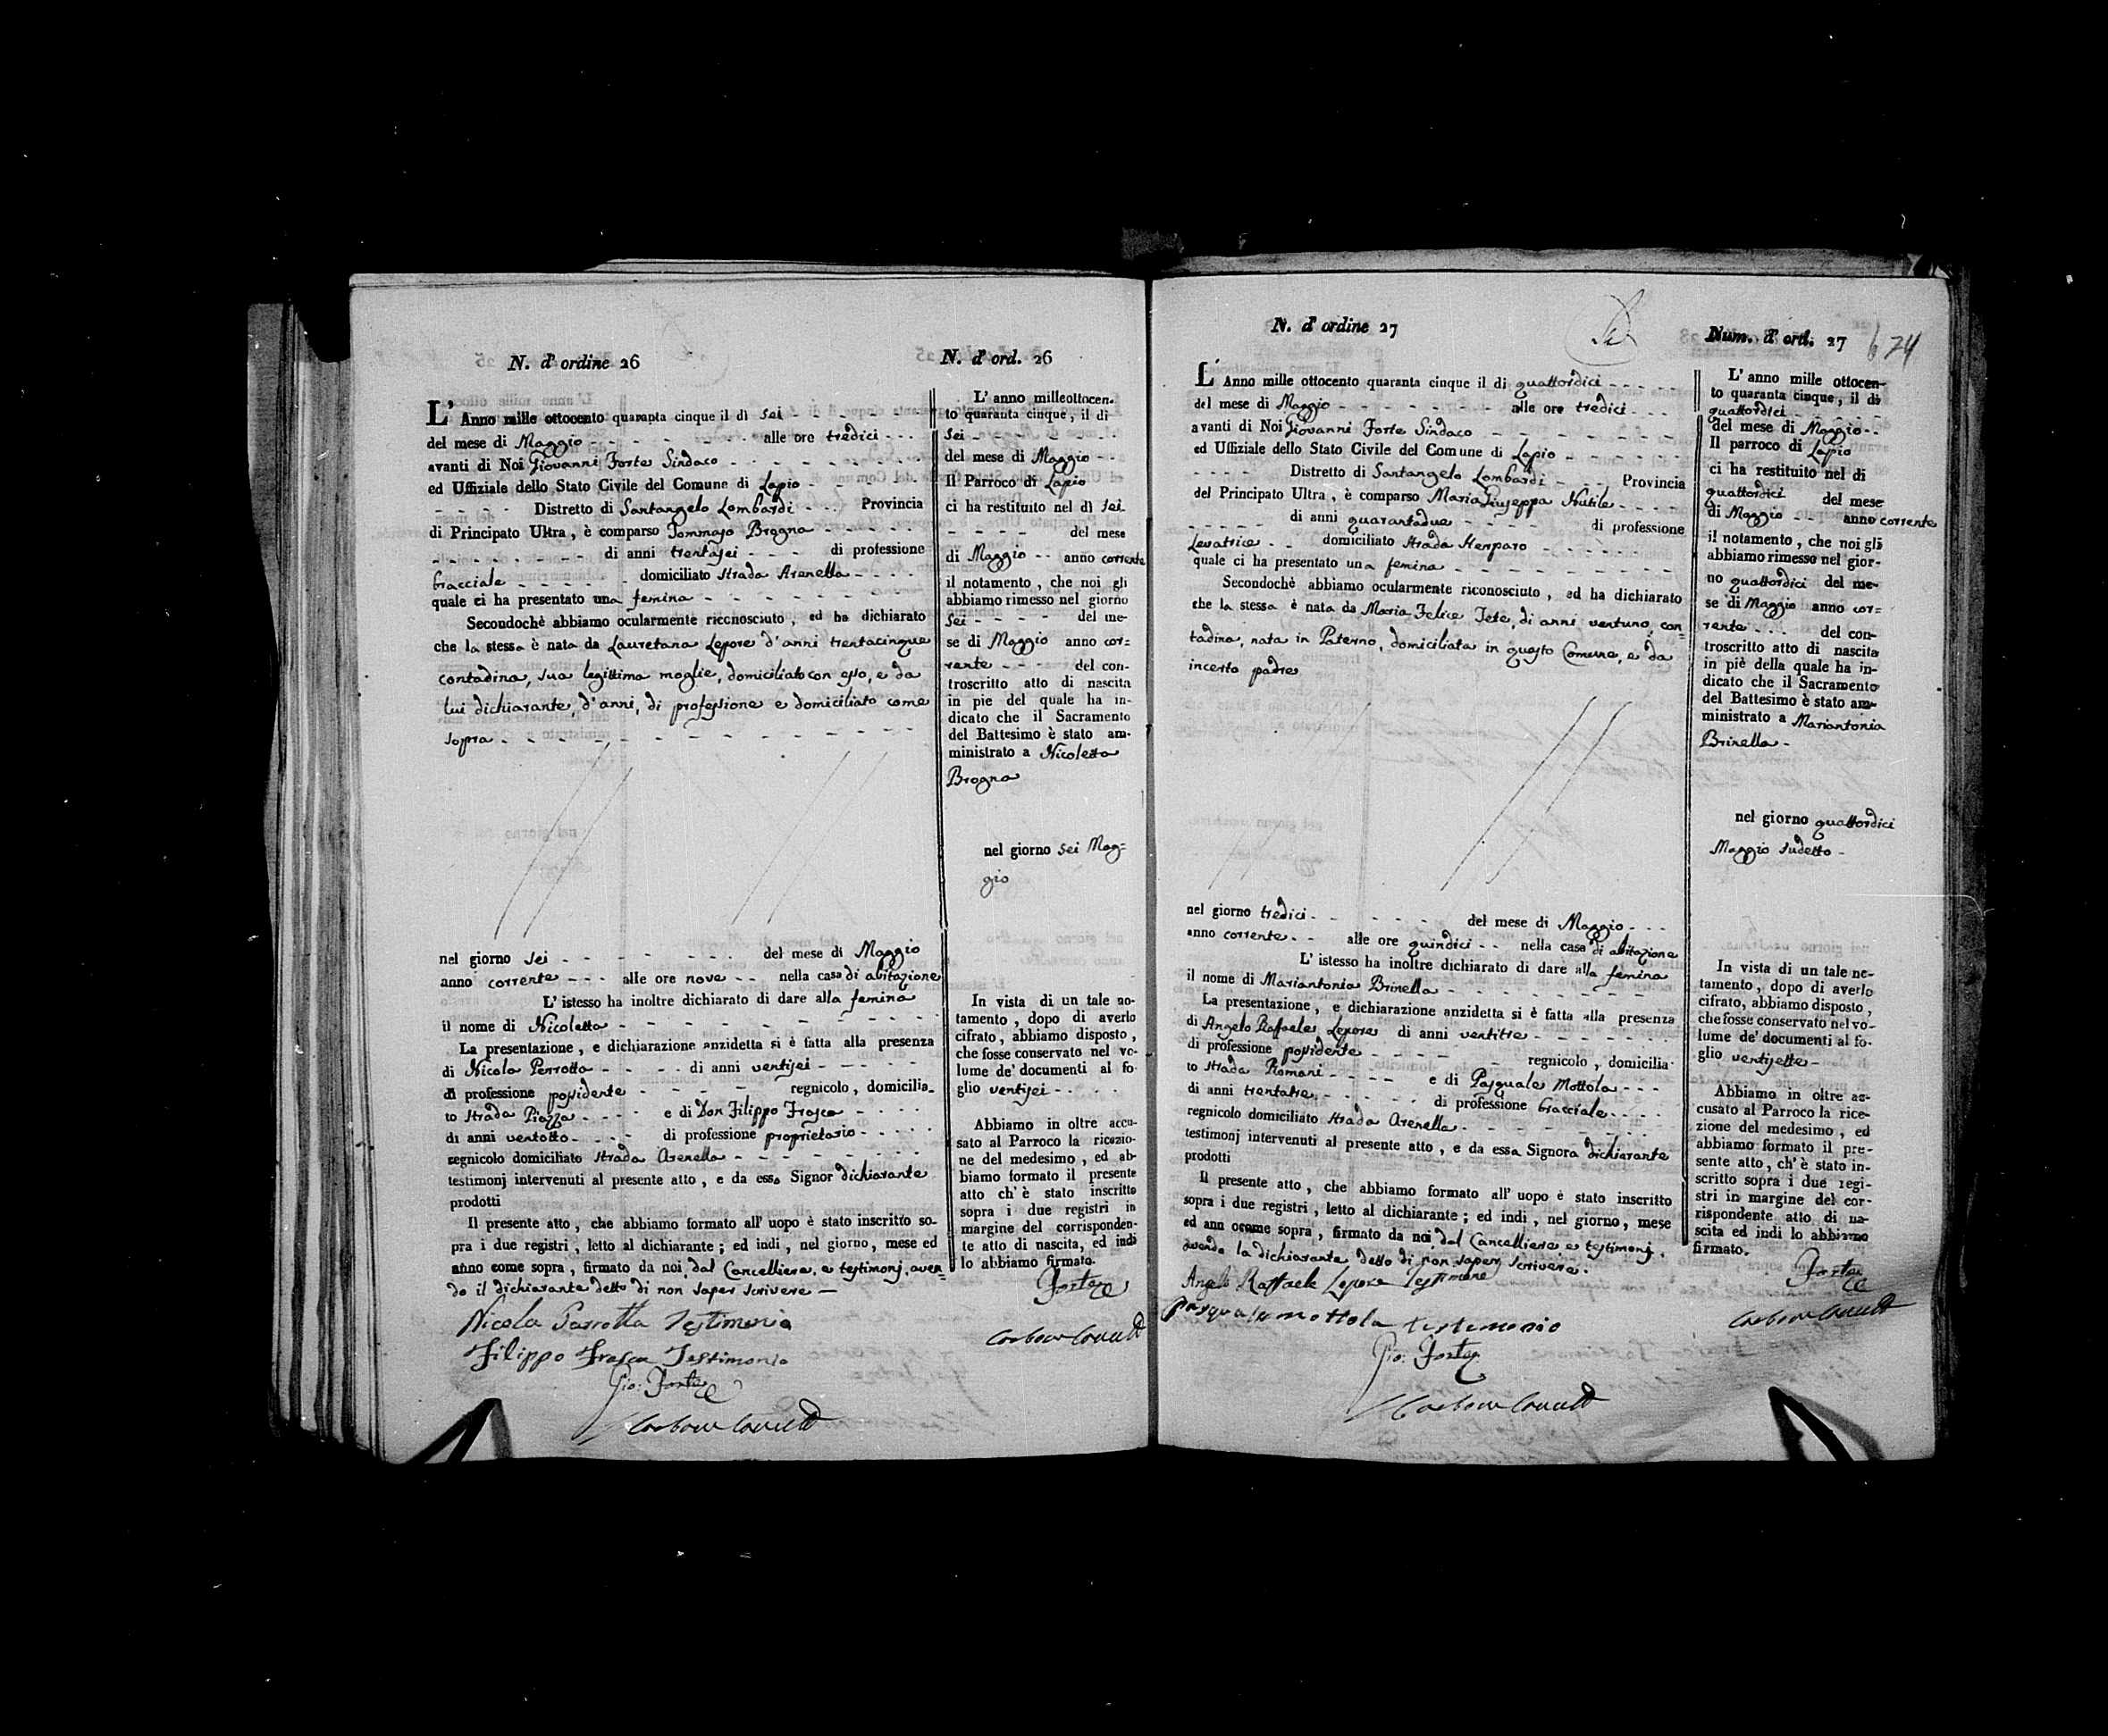 N. d' ordine 26
L' Anno mille ottocento quaranta cinque il dì sei
del mese di Maggio - - - - - alle ore tredici - - -
avanti di Noi Giovanni Forte Sindaco - - - - - - - -
ed Uffiziale dello Stato Civile del Comune di Lapio - - - - -
- - - - Distretto di Santangelo Lombardi - - - Provincia
di Principato Ultra, è comparso Tommaso Brogna - - - - -
- - - - - - - di anni trentasei - - - di professione
bracciale - - - - - domiciliato Strada Arenella - - - -
quale ci ha presentato una femina - - - - - - - -
Secondochè abbiamo ocularmente riconosciuto, ed ha dichiarato
che la stessa è nata da Lauretana Lepore d'anni trentacinque
contadina, sua legittima moglie, domiciliato con esso, e da
lui dichiarante, d'anni, di professione e domiciliato come
sopra - - - - - - - - - - - - - -
nel giorno sei - - - - - - - del mese di Maggio
anno corrente - - - alle ore nove - - nella casa di abitazione
L' istesso ha inoltre dichiarato di dare alla femina
il nome di Nicoletta - - - - - - - - - - -
La presentazione, e dichiarazione anzidetta si è fatta alla presenza
di Nicola Perrotta - - - - di anni ventisei - - - - -
di professione possidente - - - - - regnicolo, domicilia-
to Strada Piazza - - - - e di Don Filippo Frasca - - - -
di anni ventotto - - - - di professione proprietario - - - - -
regnicolo domiciliato Strada Arenella - - - - - - - -
testimonj intervenuti al presente atto, e da esso Signor dichiarante
prodotti
Il presente atto, che abbiamo formato all' uopo è stato inscritto so-
pra i due registri, letto al dichiarante; ed indi, nel giorno, mese ed
anno come sopra, firmato da noi, dal Cancelliere, e testimonj, aven=
do il dichiarante detto di non saper scrivere —
Nicola Parrotta Testimonio
Filippo Frasca Testimonio
Gio: Forte
N. d' ord. 26
L' anno milleottocen-
to quaranta cinque, il dì
sei - - - - - - -
del mese di Maggio - -
Il Parroco di Lapio
ci ha restituito nel dì sei
- - - - del mese
di Maggio - - anno corrente
il notamento, che noi gli
abbiamo rimesso nel giorno
sei - - - - del me-
se di Maggio anno cor=
rente - - - del con-
troscritto atto di nascita
in pie del quale ha in-
dicato che il Sacramento
del Battesimo è stato am-
ministrato a Nicoletta
Brogna
nel giorno sei Mag=
gio
In vista di un tale no-
tamento, dopo di averlo
cifrato, abbiamo disposto,
che fosse conservato nel vo-
lume de' documenti al fo-
glio ventisei - - - -
Abbiamo in oltre accu-
sato al Parroco la ricezio-
ne del medesimo, ed ab-
biamo formato il presente
atto ch' è stato inscritto
sopra i due registri in
margine del corrisponden-
te atto di nascita, ed indi
lo abbiamo firmato.
Forte
N. d' ordine 27
L' Anno mille ottocento quaranta cinque il di quattordici - - - - -
del mese di Maggio - - - - - - - alle ore tredici - - -
avanti di Noi Giovanni Forte Sindaco - - - - - - -
ed Uffiziale dello Stato Civile del Comune di Lapio - - - - - -
- - - - Distretto di Santangelo Lombardi - - - Provincia
del Principato Ultra, è comparso Maria Giuseppa Nutile - - - -
- - - - - di anni quarantadue - - - - di professione
Levatrice - - domiciliato Strada Henparo - - - - - -
quale ci ha presentato una femina - - - - - - - - -
Secondochè abbiamo ocularmente riconosciuto, ed ha dichiarato
che la stessa è nata da Maria Felice Tete, di anni ventuno, con=
tadina, nata in Paterno, domiciliata in questo Comune, e da
incerto padre
nel giorno tredici - - - - - - del mese di Maggio - - -
anno corrente - - alle ore quindici - - nella casa di abitazione
L' istesso ha inoltre dichiarato di dare alla femina
il nome di Mariantonia Brinella - - - - - - - -
La presentazione, e dichiarazione anzidetta si è fatta alla presenza
di Angelo Raffaele Lepore di anni ventitre - - - - - -
di professione possidente - - - - - regnicolo, domicilia-
to Strada Romani - - - - e di Pasquale Mottola - - -
di anni trentatre - - - - - di professione bracciale - - - -
regnicolo domiciliato Strada Arenella - - - - - - - -
testimonj intervenuti al presente atto, e da essa Signora dichiarante
prodotti
Il presente atto, che abbiamo formato all' uopo è stato inscritto
sopra i due registri, letto al dichiarante; ed indi, nel giorno, mese
ed ann ocome sopra, firmato da noi, dal Cancelliere e testimonj,
avendo la dichiarante detto di non saper scrivere.
Angelo Raffaele Lepore Testimone
Pasquale mottola testemonio
Gio: Forte
Num. d' ord. 27
74
L' anno mille ottocen-
to quaranta cinque, il di
quattordici - - - - -
del mese di Maggio - -
Il parroco di Lapio
ci ha restituito nel di
quattordici del mese
di Maggio - - anno corrente
il notamento, che noi gli
abbiamo rimesso nel gior-
no quattordici del me-
se di Maggio anno cor=
rente - - - del con-
troscritto atto di nascita
in piè della quale ha in-
dicato che il Sacramento
del Battesimo è stato am-
ministrato a Mariantonia
Brinella -
nel giorno quattordici
Maggio sudetto -
In vista di un tale no-
tamento, dopo di averlo
cifrato, abbiamo disposto,
che fosse conservato nel vo-
lume de' documenti al fo-
glio ventisette -
Abbiamo in oltre ac-
cusato al Parroco la rice-
zione del medesimo, ed
abbiamo formato il pre-
sente atto, ch' è stato in-
scritto sopra i due regi-
stri in margine del cor-
rispondente atto di na-
scita ed indi lo abbiamo
firmato.
Forte